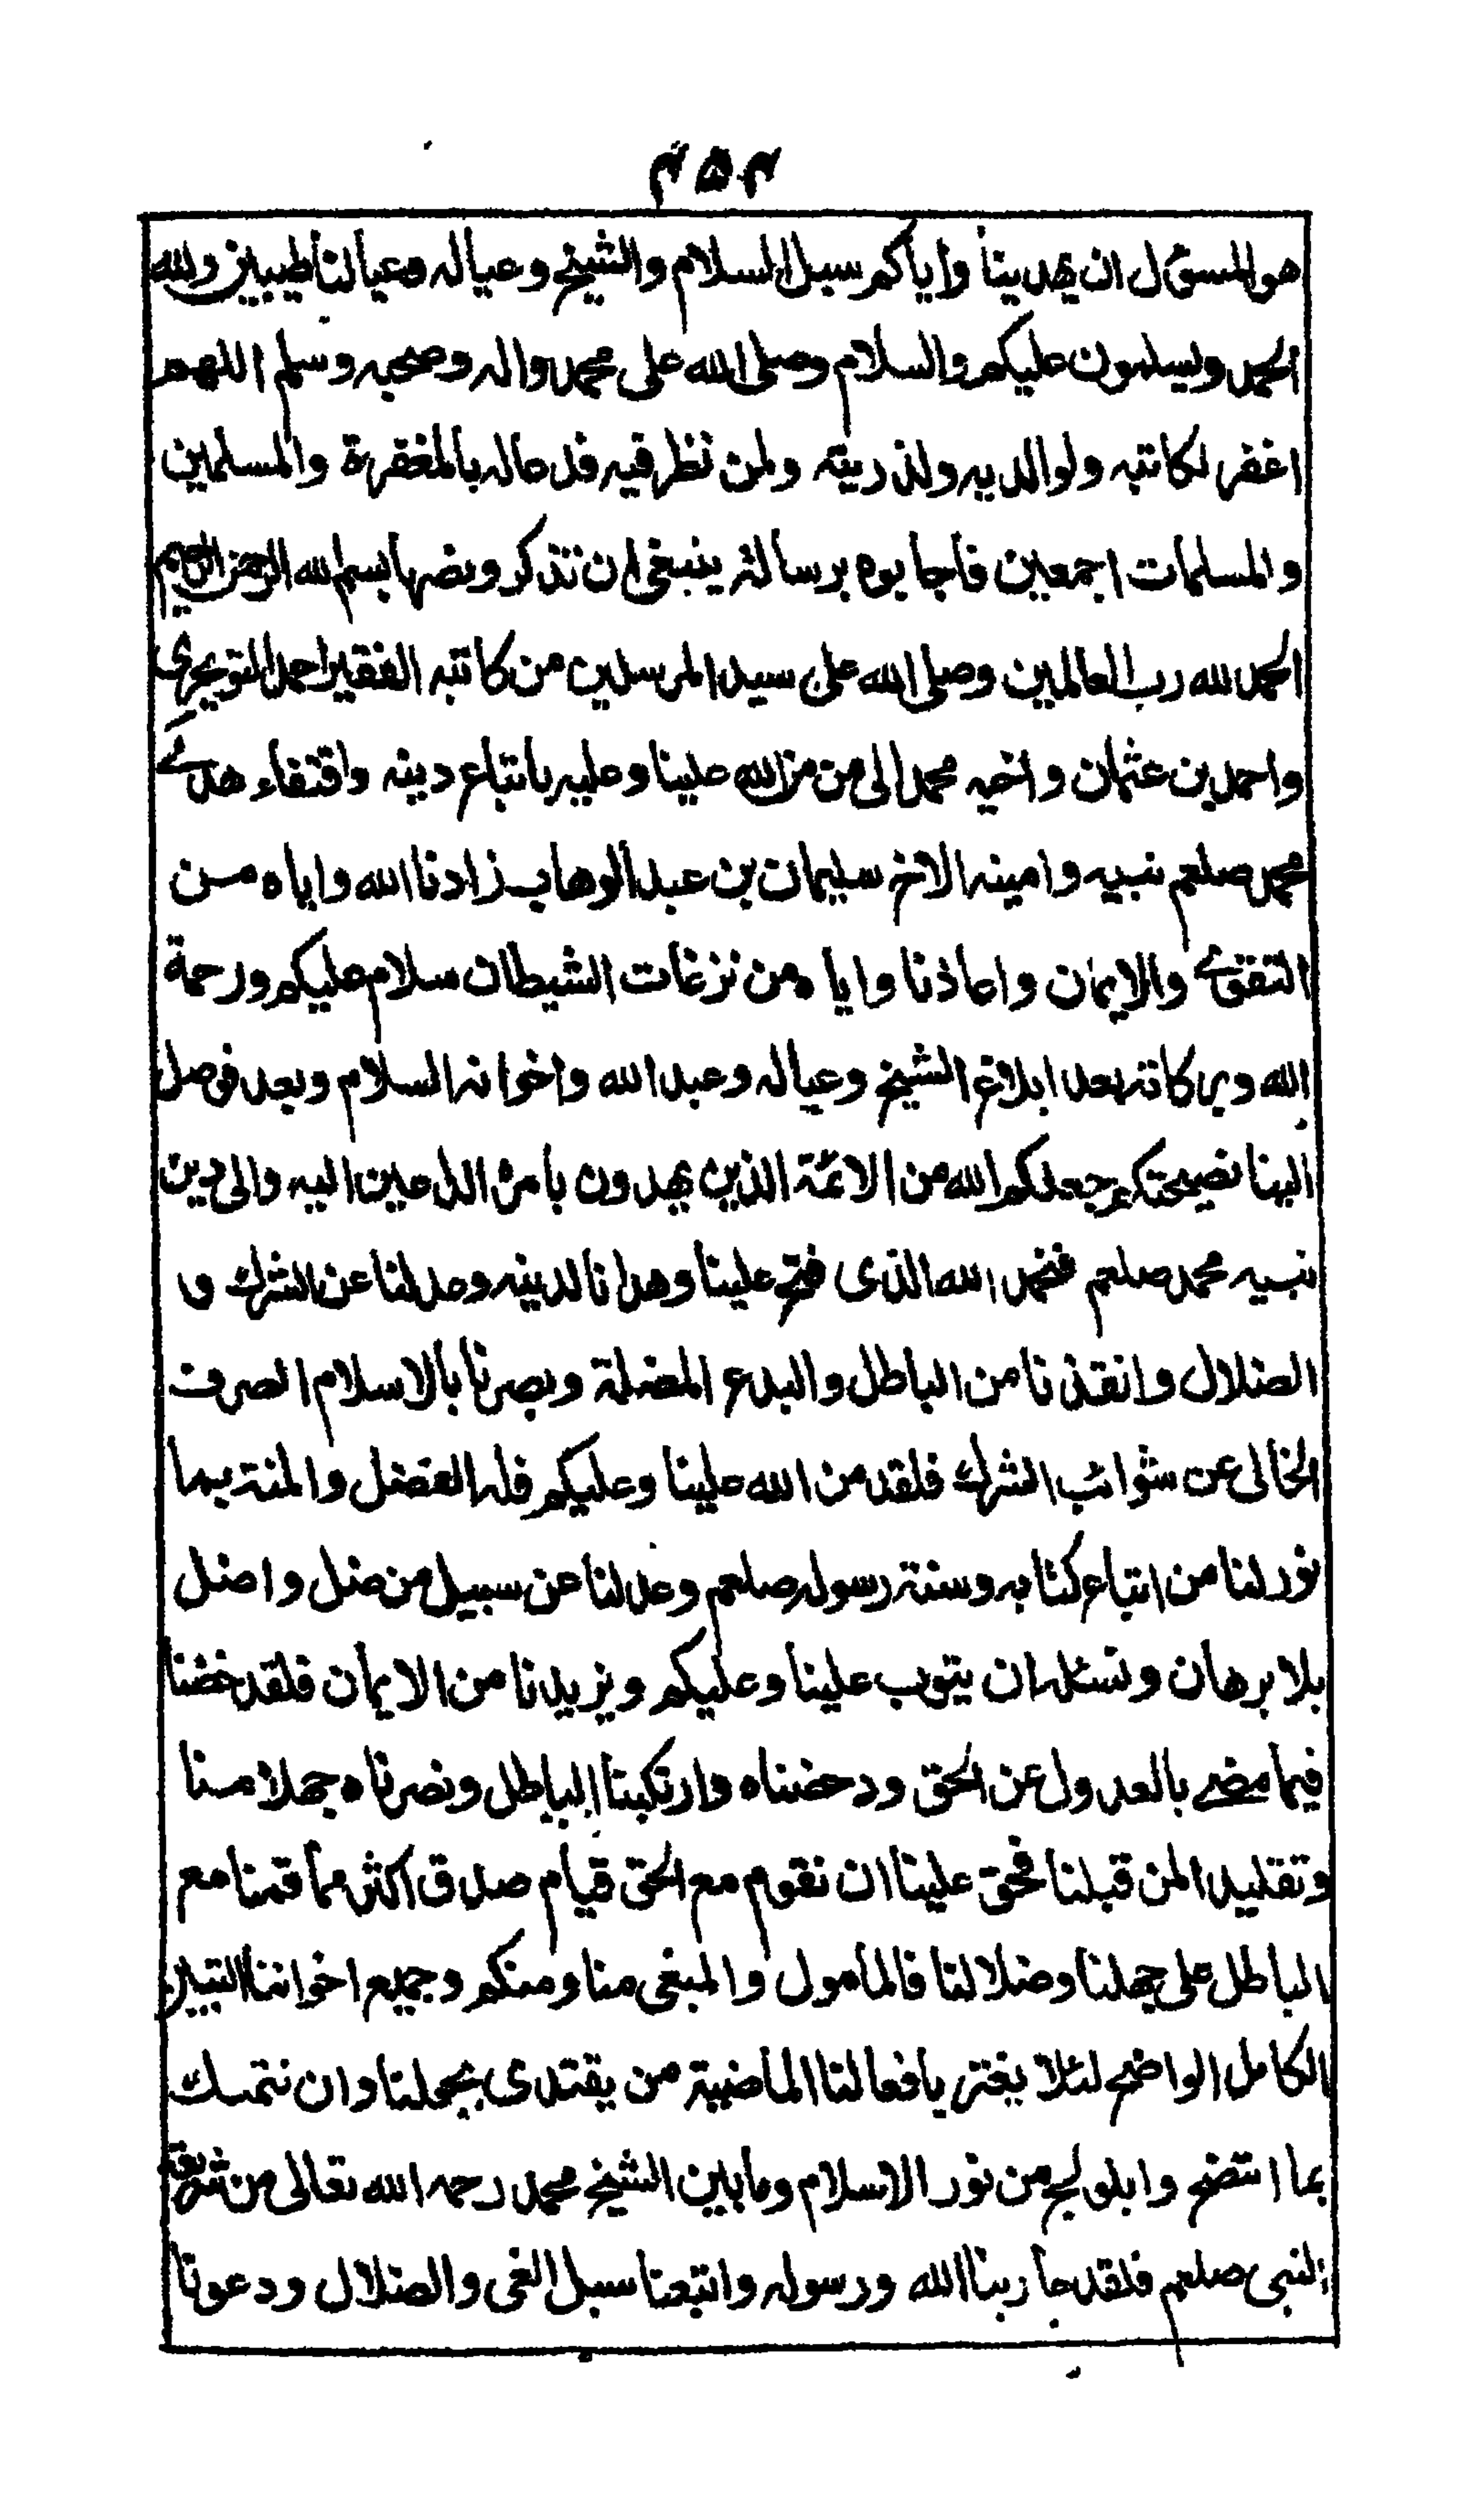 ٢٥٢
هو المسؤل ان يهدينا واياكم سبل السلام والشيخ وعياله وعيالنا طيبين ولله
الحمد ويسلمون عليكم والسلام وصلى الله على محمد واله وصحبه وسلم اللهم
اغفر لكاتبه ولوالديه ولذريته ولمن نظر فيه فدعا له بالمغفرة والمسلمين
والمسلمات اجمعين فاجابوه برسالة ينبغي ان تذكر ونصها بسم الله الرحمن الرحيم
الحمد لله رب العالمين وصلى الله على سيد المرسلين من كاتبه الفقير احمد التويجري
واحمد بن عثمان واخيه محمد الى من من الله علينا وعليه باتباع دينه واقتفاء هدى
محمد صلعم نبيه وامينه الاخ سليمان بن عبد الوهاب زادنا الله واياه من
التقوى والايمان واعاذنا واياه من نزغات الشيطان سلام عليكم ورحمة
الله وبركاته بعد ابلاغ الشيخ وعياله وعبد الله واخوانه السلام وبعد فوصل
الينا نصيحتكم جعلكم الله من الائمة الذين يهدون بامره الداعين اليه والى دين
نبيه محمد صلعم فنحمد الله الذي فتح علينا وهدانا لدينه وعدلنا عن الشرك و
الضلال وانقذنا من الباطل والبدع المضلة وبصرنا بالاسلام الصرف
الخالى عن شوائب الشرك فلقد من الله علينا وعليكم فله الفضل والمنة بما
نور لنا من اتباع كتابه وسنة رسوله صلعم وعدلنا عن سبيل من ضل واضل
بلا برهان ونسئله ان يتوب علينا وعليكم ويزيدنا من الايمان فلقد خضنا
فيما مضى بالعدول عن الحق ودحضناه وارتكبنا الباطل ونصرناه جهلا منا
وتقليدا لمن قبلنا فحق علينا ان نقوم مع الحق قيام صدق اكثر مما قمنا مع
الباطل على جهلنا وضلالنا فالمامول والمبغى منا ومنكم وجميع اخواننا التبيين
الكامل الواضح لئلا يغتر بافعالنا الماضية من يقتدى بجهلنا وان نتمسك
بما اتضح وابلولج من نور الاسلام وما بين الشيخ محمد رحمه الله تعالى من شريعة
النبى صلعم فلقد حاربنا الله ورسوله واتبعنا سبل الغى والضلال ودعونا